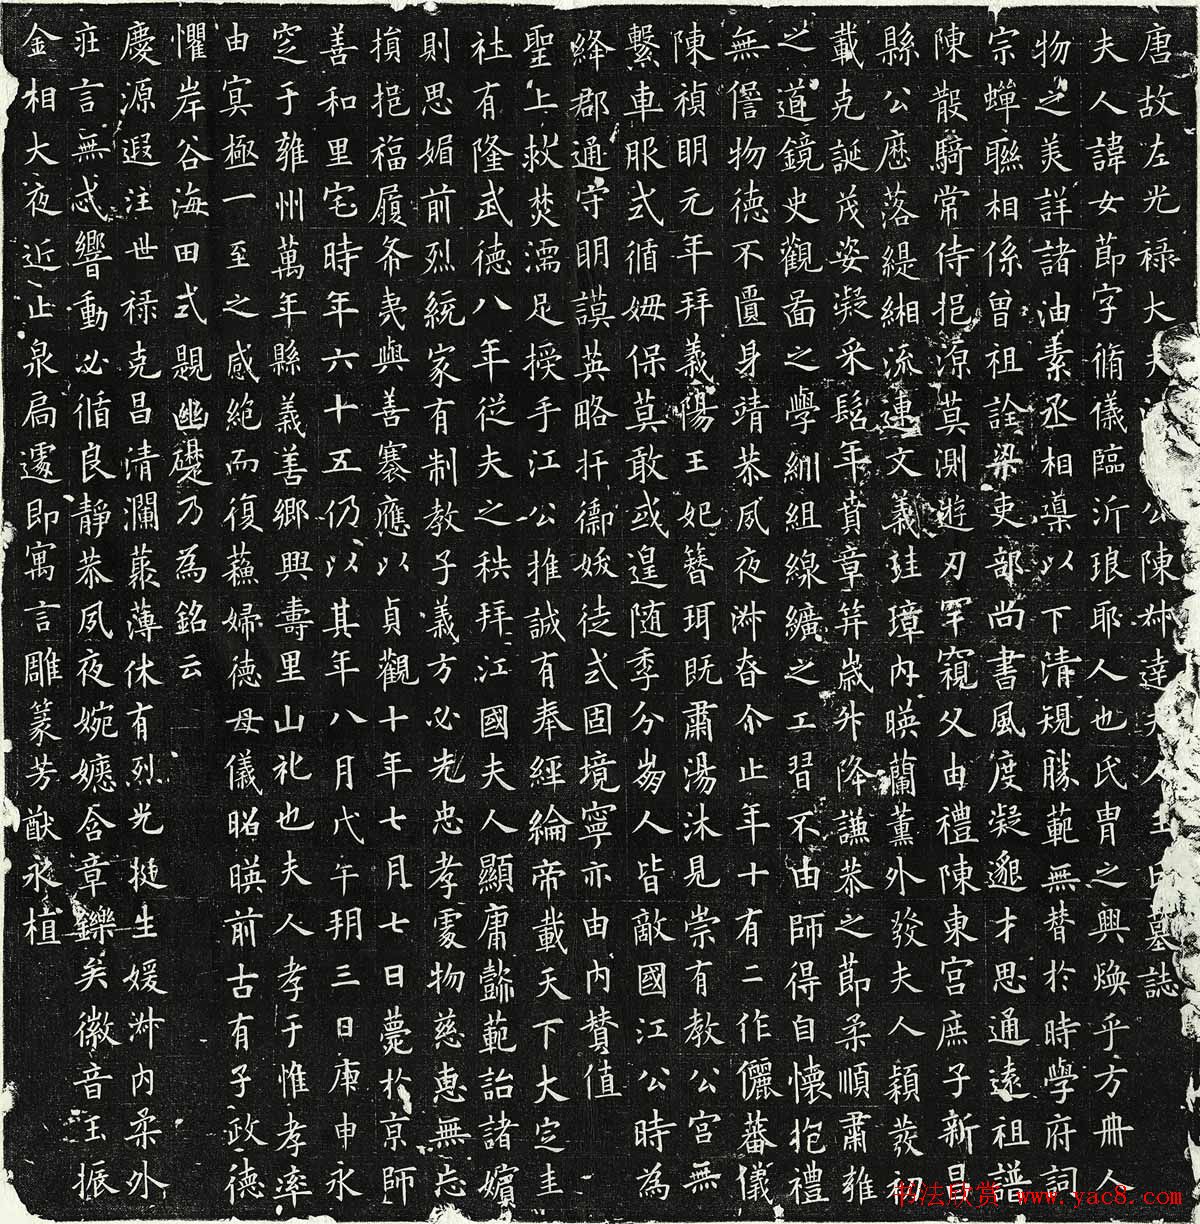 唐故左光禄大夫江國公陳叔達夫人王氏墓誌
夫人諱女節字脩儀臨沂琅耶人也氏冑之興煥乎方冊人
物之美詳諸油素丞相導以下清規勝範無替於時學府詞
宗蟬聯相係曾祖詮梁吏部尚書風度凝邈才思通遠祖譜
陳散騎常侍挹源莫測遊刃罕窺父由禮陳東宮庶子新昌
縣公歷落緹緗流連文義珪璋內暎蘭薰外發夫人穎發初
載克誕茂姿凝采髫年賁章笄歲外降謙恭之節柔順肅雍
之道鏡史觀圖之學絒組線纊之工習不由師得自懷抱禮
無僭物德不匱身靖恭夙夜淋慎介止年十有二作儷蕃儀
陳禎明元年拜義陽王妃簪珥既肅湯沐見崇有教公宮無
繫車服式循姆保莫敢或遑隨季分崩人皆敵國江公時為
絳郡通守明謨英略扞衞妖徒式固境寧亦由內贊值
聖上救焚濡足授手江公推誠有奉經綸帝載天下大定圭
社有隆武德八年従夫之秩拜江國夫人顯庸懿範詒諸嬪
則思媚前烈統家有制教子義方必先忠孝處物慈惠無忘
損挹福履希夷與善褰應以貞觀十年七月七日薨於京師
善和里宅時年六十五仍以其年八月戊午朔三日庚申永
窆于雍州萬年縣義善鄉興壽里山礼也夫人孝于惟孝率
由冥極一至之感絕而復蘇婦德母儀昭暎前古有子政德
懼岸谷海田式題幽礎乃為銘云
慶源遐注世禄克昌清瀾藂薄休有烈光挺生媛淋內柔外
莊言無忒響動必循良靜恭夙夜婉嬺含章鑠矣徽音玉振
金相大夜近止泉扃遽即寓言雕篆芳猷永植
书法欣赏 www.yac8.com